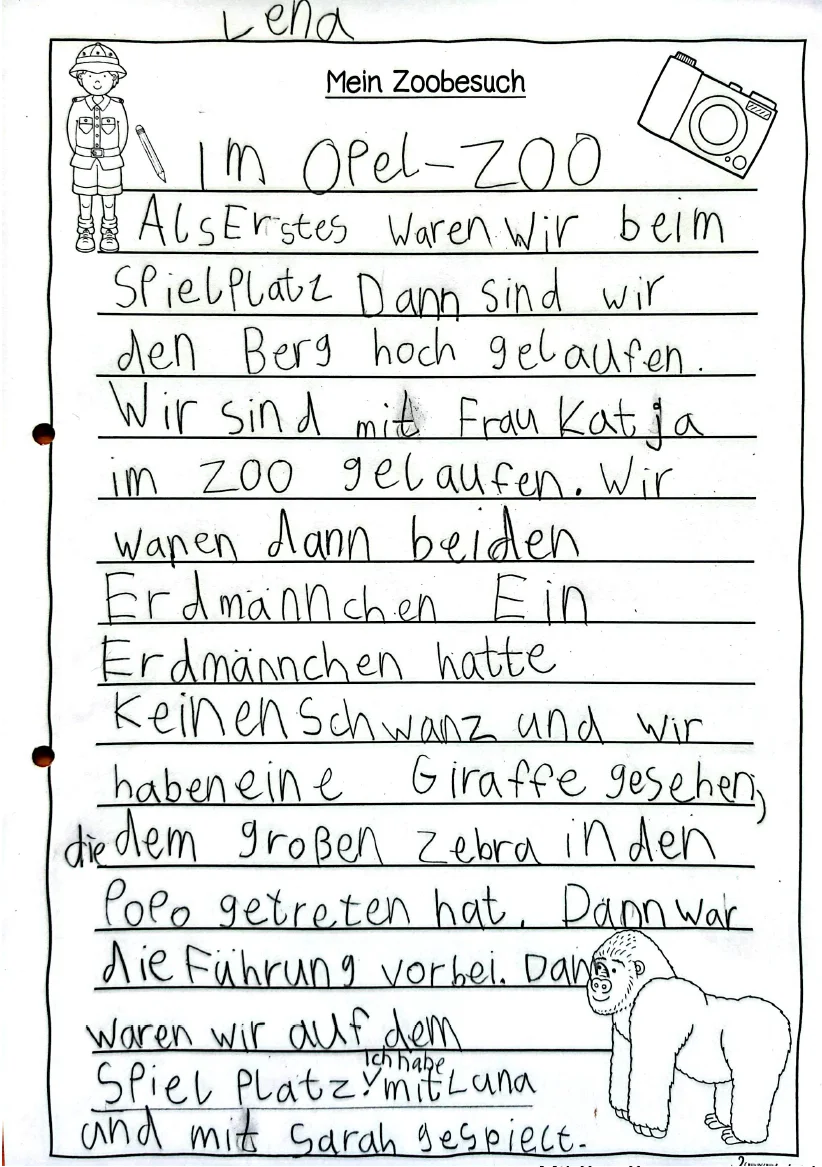 Lena
Mein Zoobesuch
im Opel-ZOO
Als Erstes waren wir beim
Spielplatz Dann sind wir
den Berg hoch gelaufen.
Wir sind mit Frau Katja
im ZOO gelaufen. Wir
waren dann bei den
Erdmännchen Ein
Erdmännchen hatte
Keinen Schwanz und wir
haben eine Giraffe gesehen,
die dem großen Zebra in den
Popo getreten hat. Dann war
die Führung vorbei. Dan
waren wir auf dem
Ich habe
Spiel Platz. mit Luna
und mit Sarah gespielt.